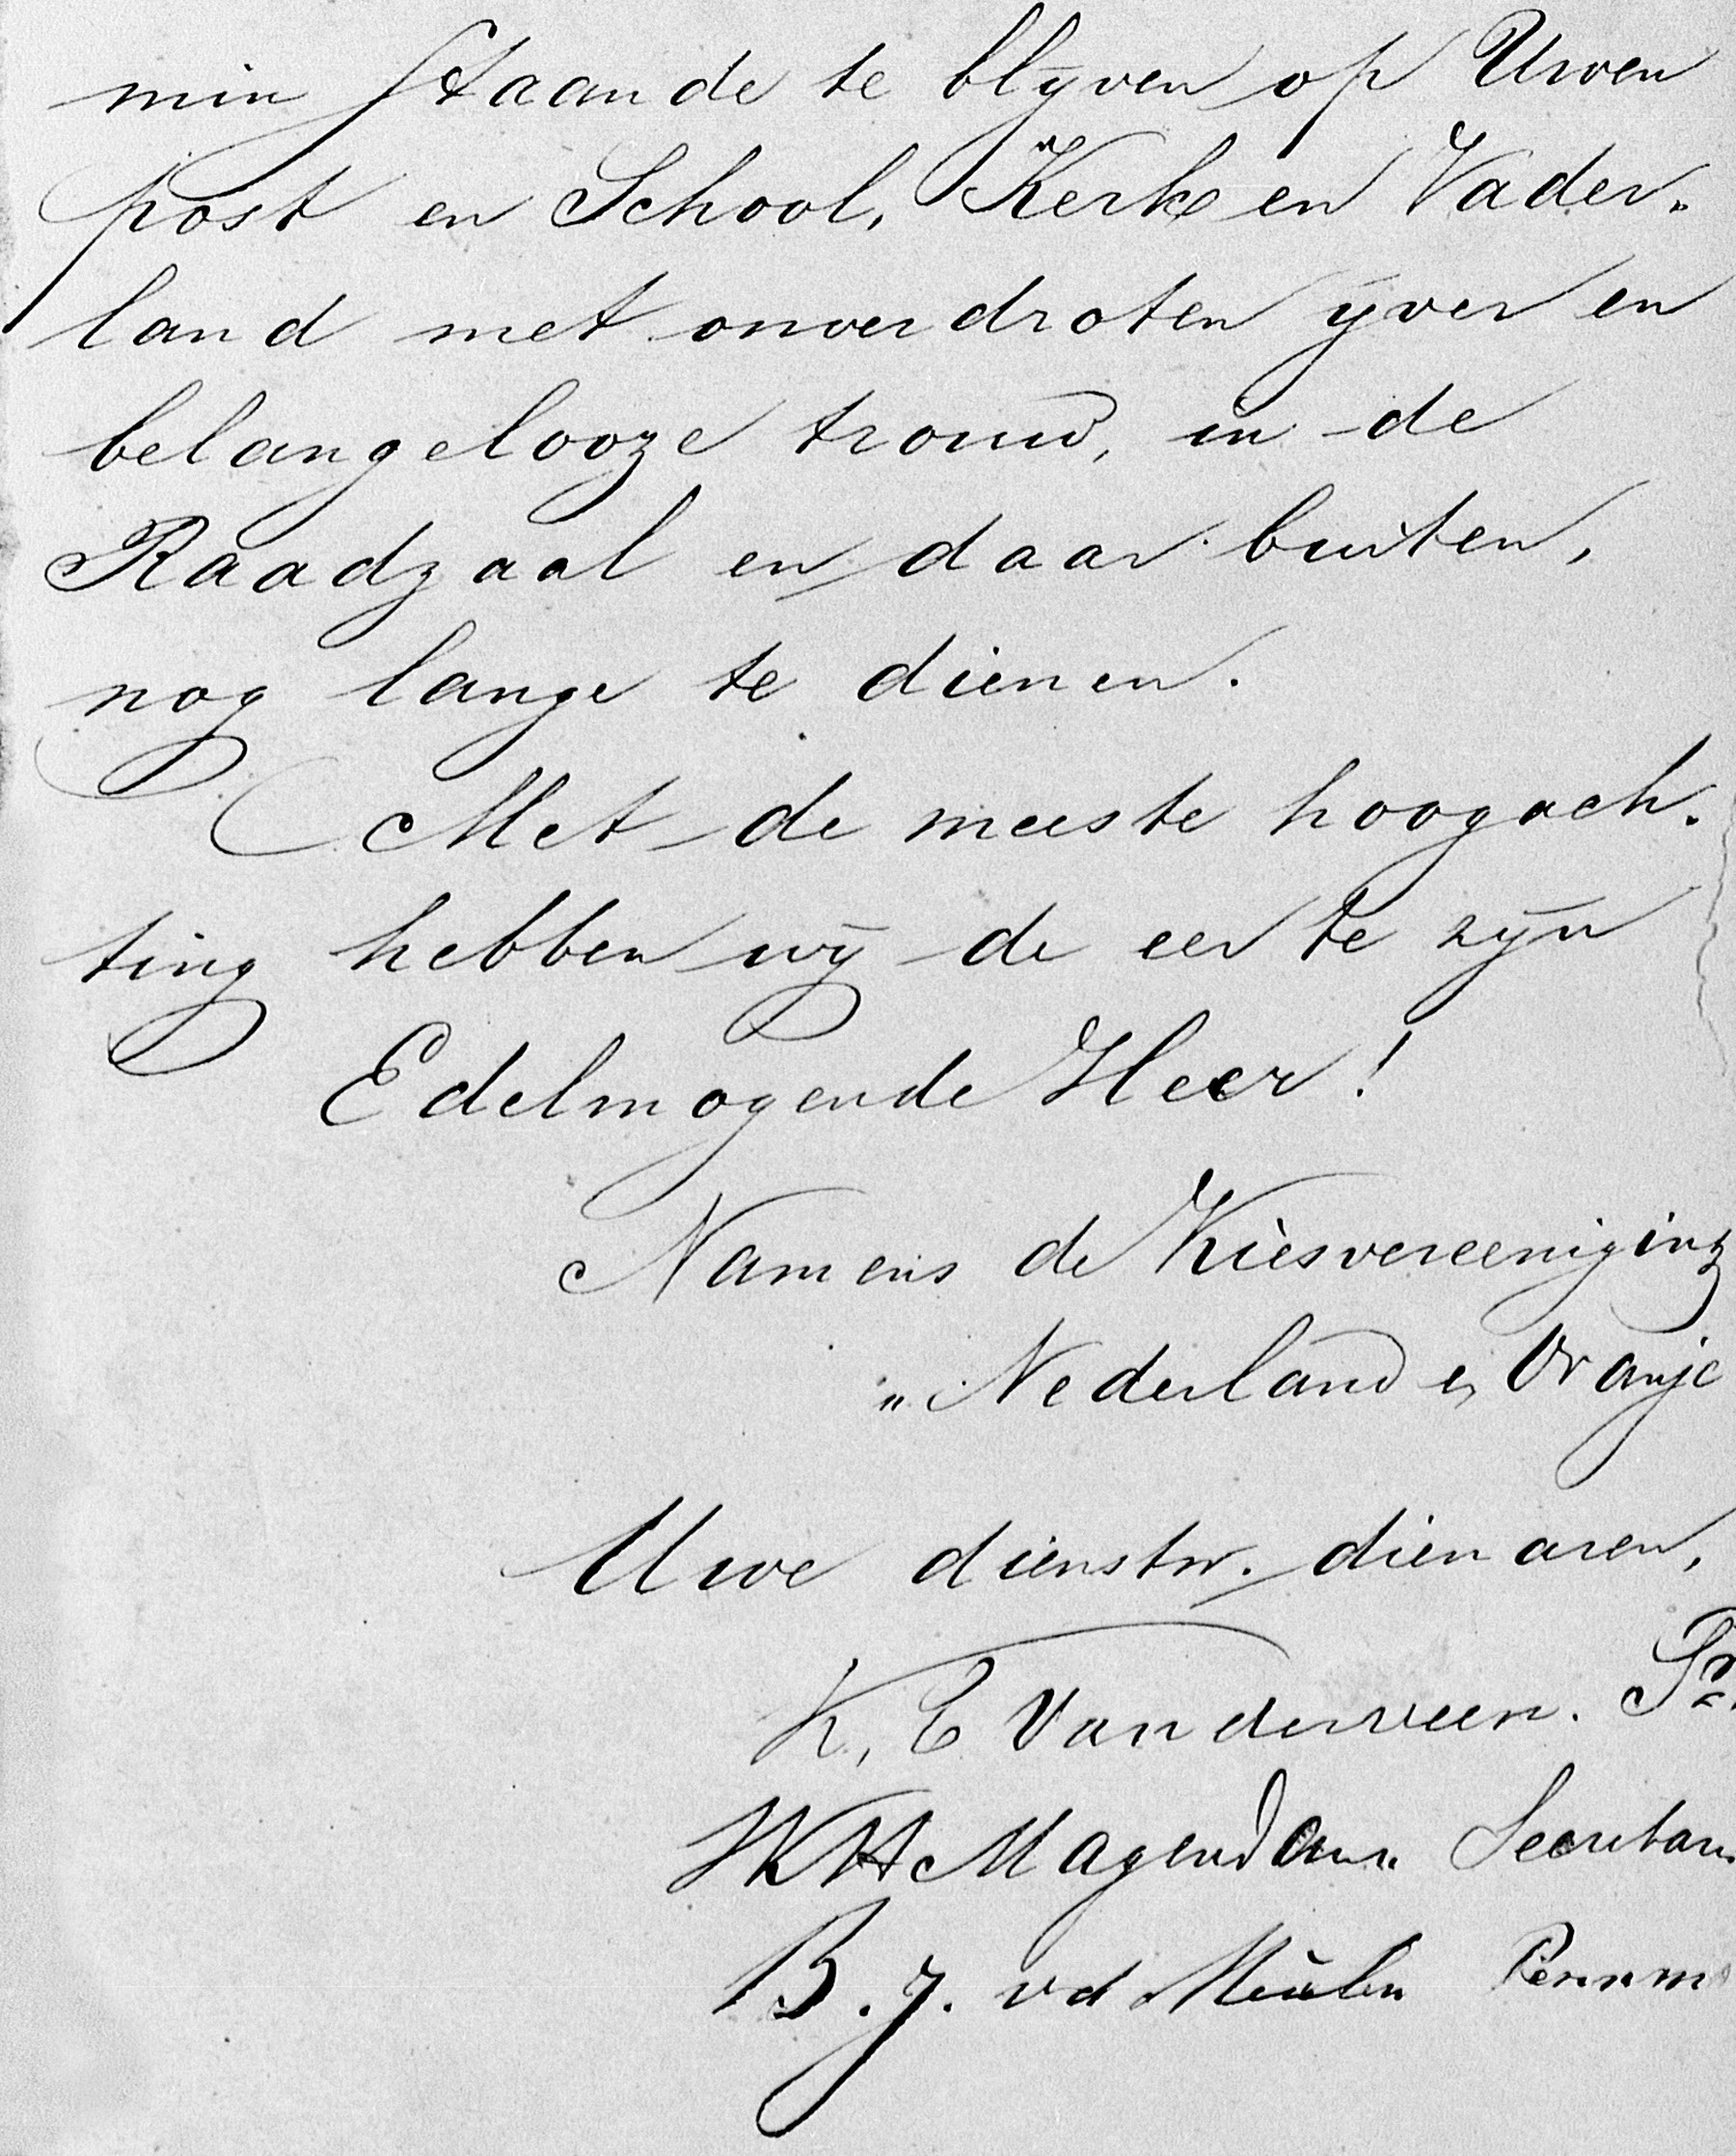 min staande te blijven op Uwen
post en School, Kerk en Vader„
land met onverdroten ijver en
belangelooze trouw, in de
Raadzaal en daar buiten,
nog lange te dienen.
Met de meeste hoogach„
ting hebben wij de eer te zijn
Edelmogende Heer!
Namens de Kiesvereeniging
„Nederland en Oranje
Uwe dienstw. dienaren,
K. E Van der veen.
WH Magendans Secretar
B. J. vd Meulen Pennm